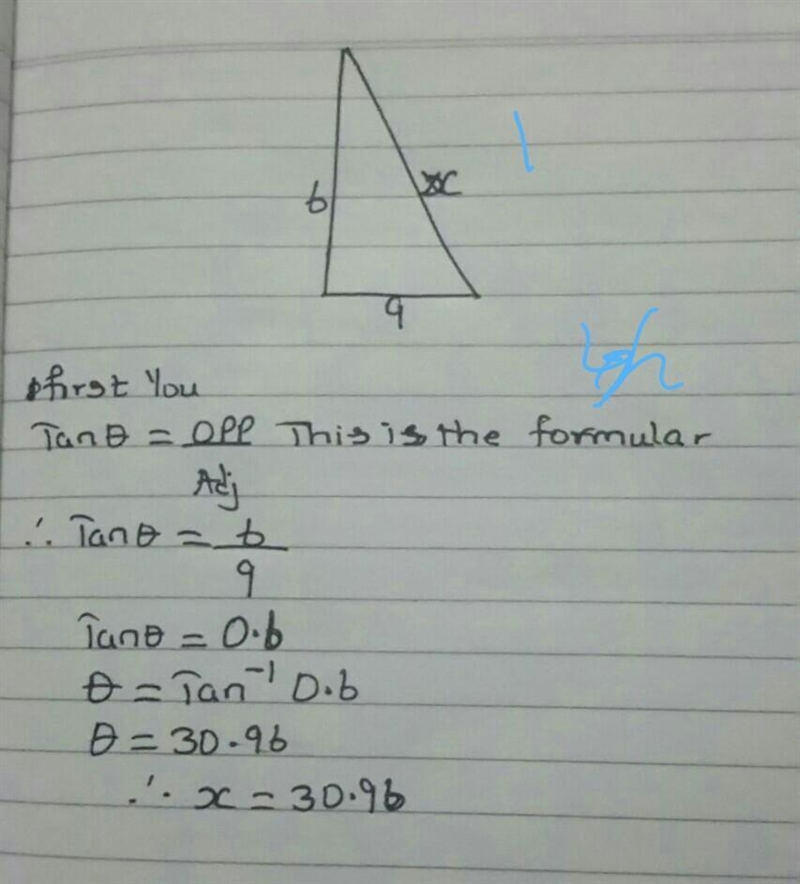 6
x
9
first You
Tanθ = OPP This is the formular
Adj
∴ Tanθ = 6
9
Tanθ = 0.6
θ = Tan⁻¹ 0.6
θ = 30.96
∴ x = 30.96